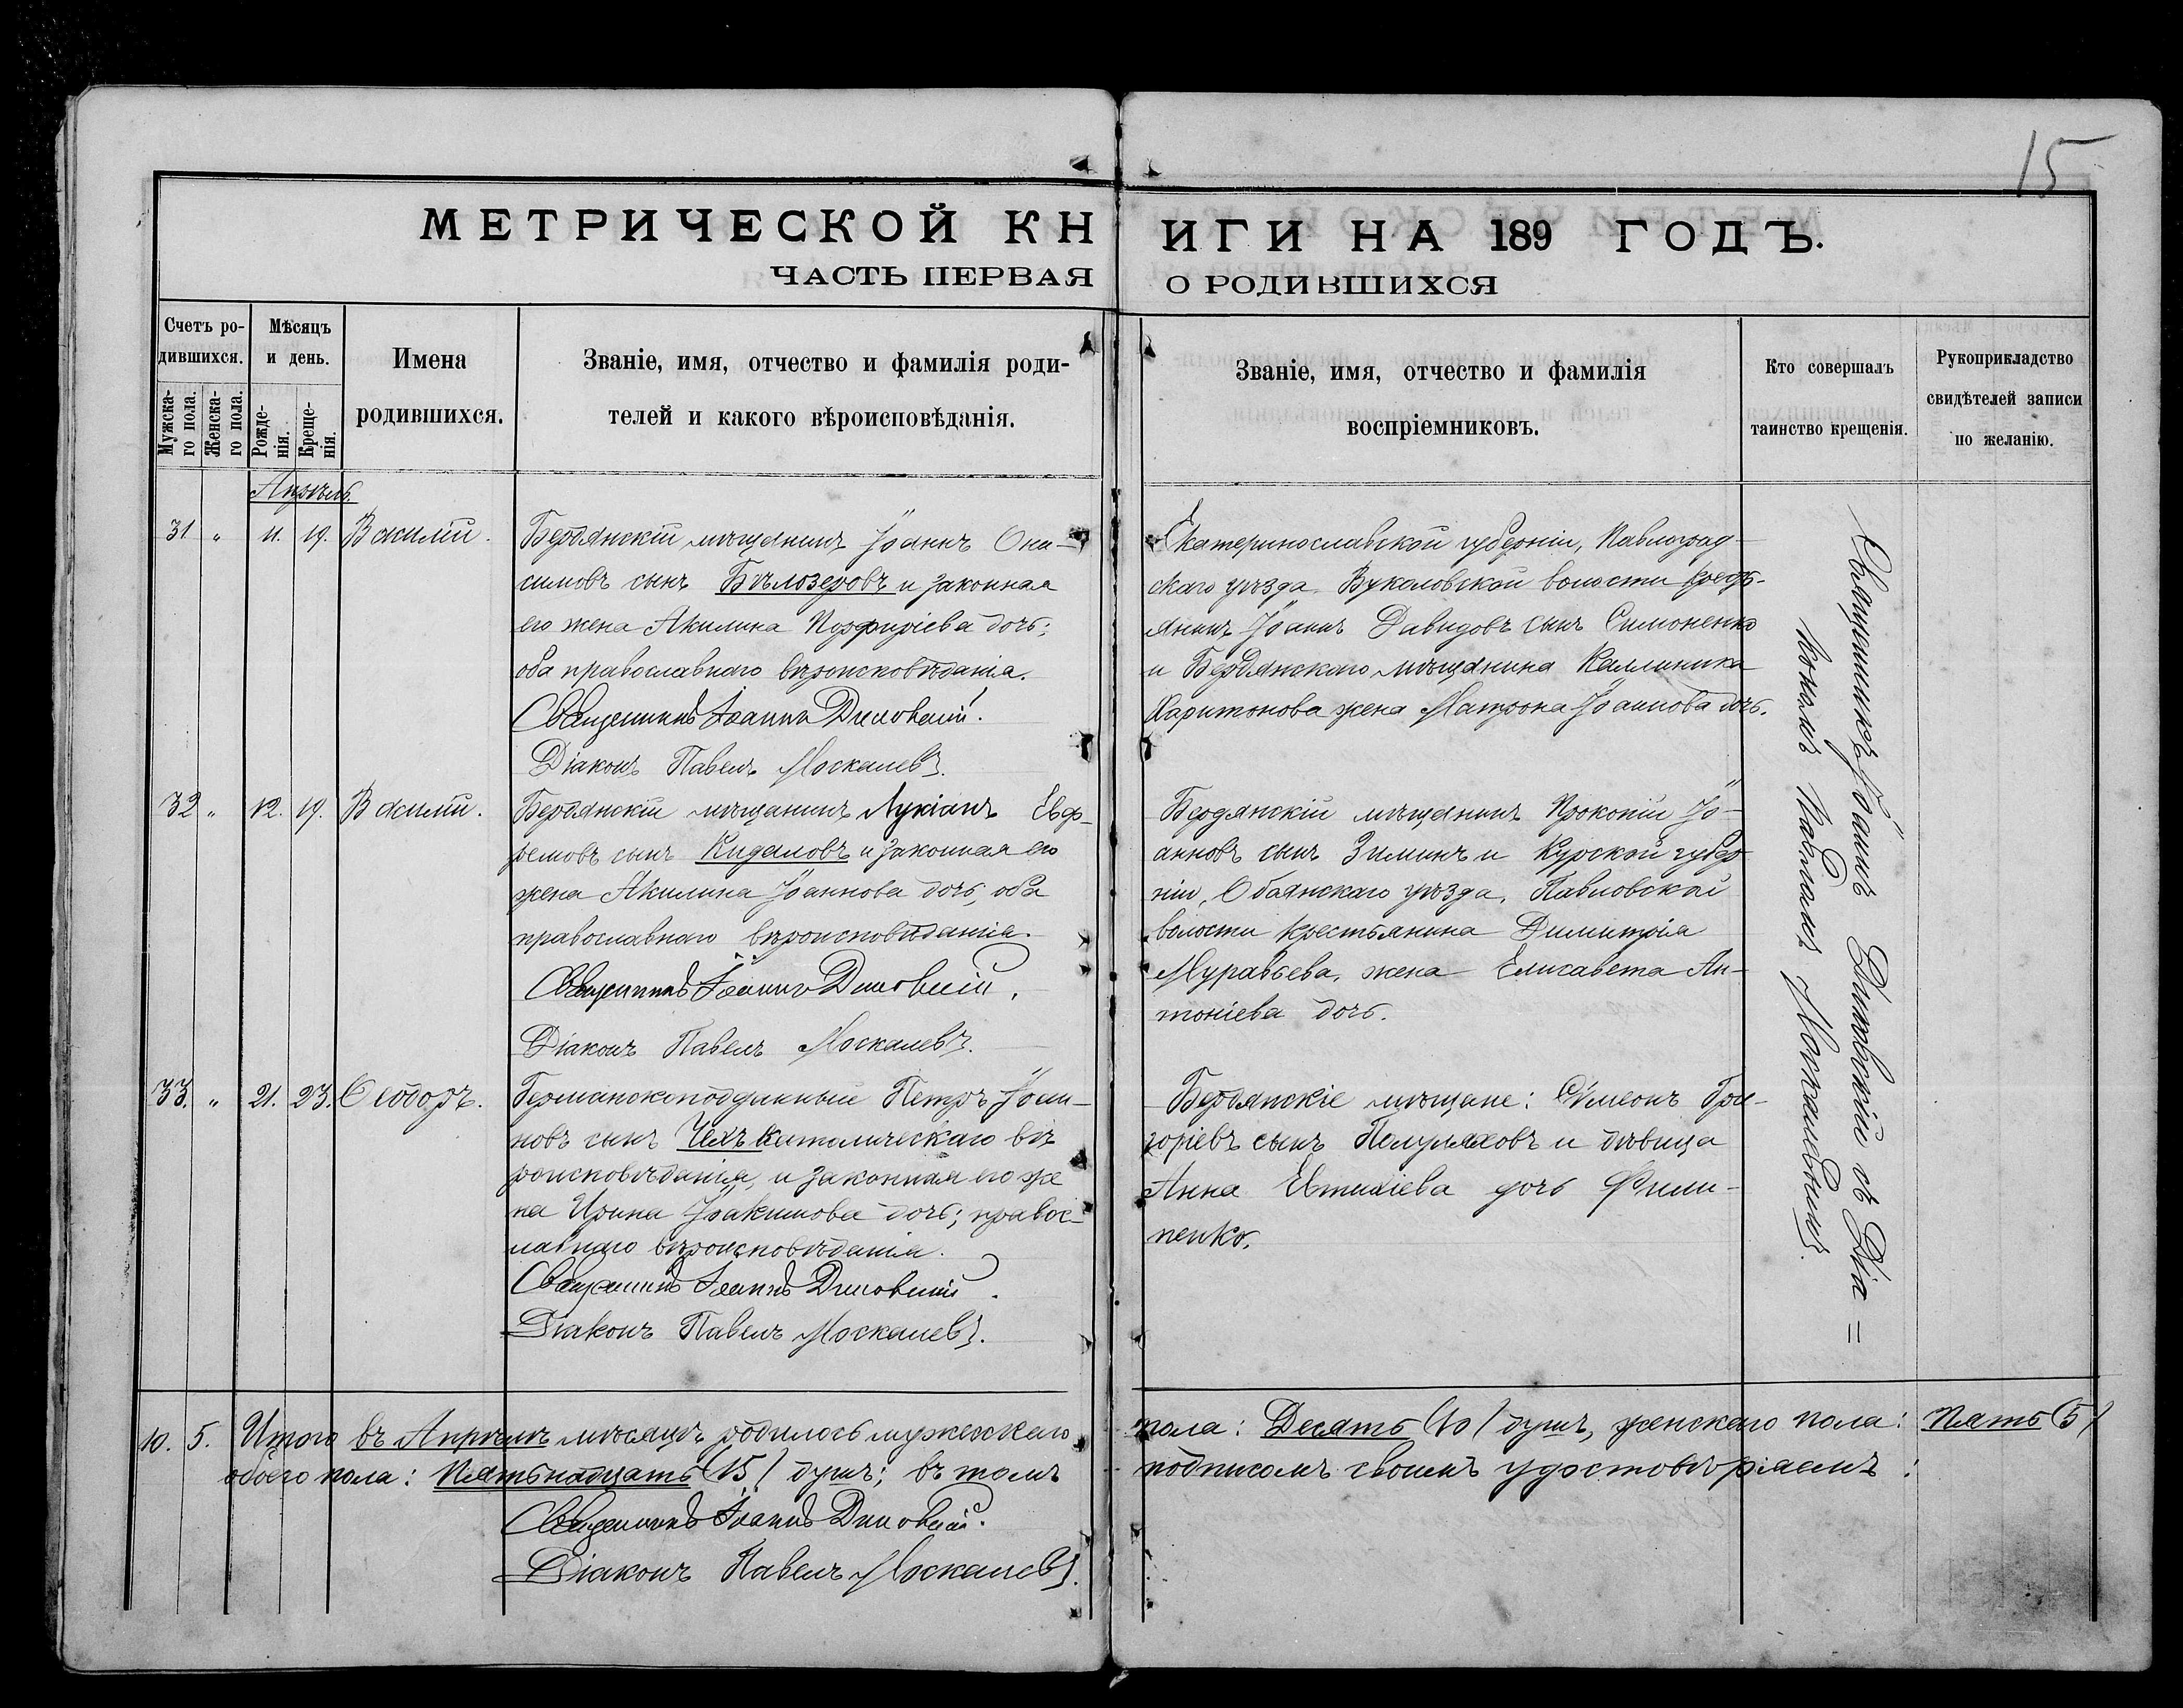 15
МЕТРИЧЕСКОЙ КНИГИ НА 189 ГОДЪ.
ЧАСТЬ ПЕРВАЯ О РОДИВШИХСЯ
Счетъ ро-
дившихся.
Мужска-
го пола.
Женска-
го пола.
Мѣсяцъ
и день.
Рожде-
нія.
Креще-
нія.
Имена
родившихся.
Званіе, имя, отчество и фамилія роди-
телей и какого вѣроисповѣданія.
Званіе, имя, отчество и фамилія
воспріемниковъ.
Кто совершалъ
таинство крещенія.
Рукоприкладство
свидѣтелей записи
по желанію.
Апрѣль
31 " 11. 19. Василій.
Бердянскій мѣщанинъ Іоаннъ Они-
симовъ сынъ Бѣлозеровъ и законная
его жена Акилина Порфиріева дочь;
оба православнаго вѣроисповѣданія.
Священникъ Іоаннъ
Діаконъ Павелъ Москалевъ.
Екатеринославской губерніи, Павлоград-
скаго уѣзда, Вуколовской волости крест-
янинъ Іоаннъ Давидовъ сынъ Симоненко
и Бердянскаго мѣщанина Каллиника
Харитонова жена Матрона Іоаннова дочь.
32 " 12. 19. Василій.
Бердянскій мѣщанинъ Лукіанъ Евф-
ремовъ сынъ Кидаловъ и законная его
жена Акилина Іоаннова дочь, оба
православнаго вѣроисповѣданія.
Священникъ Іоаннъ
Діаконъ Павелъ Москалевъ.
Бердянскій мѣщанинъ Прокопій Іо-
анновъ сынъ Зиминъ и Курской губер
ніи, Обоянскаго уѣзда, Павловской
волости крестьянина Димитрія
Муравьева, жена Елисавета Ан-
тоніева дочь.
33. " 21. 23. Ѳеодоръ.
Германскоподданный Петръ Іоан-
новъ сынъ Чехъ католическаго вѣ
роисповѣданія, и законная его же
на Ирина Іоакимова дочь; правос-
лавнаго вѣроисповѣданія.
Священникъ Іоаннъ
Діаконъ Павелъ Москалевъ.
Бердянскіе мѣщане: Сѵмеонъ Гри-
горіевъ сынъ и дѣвица
Анна Евтихіева дочь Фили-
пенко.
Священникъ Іоаннъ съ Діа=
кономъ Павломъ Москалевымъ.
10. 5. Итого въ Апрѣлѣ мѣсяцѣ родилось мужескаго пола: Десять (10) душъ, женскаго пола: Пять (5)
обоего пола: Пятьнадцать (15) душъ; въ томъ подписомъ своимъ удостовѣряемъ:
Священникъ Іоаннъ
Діаконъ Павелъ Москалевъ.